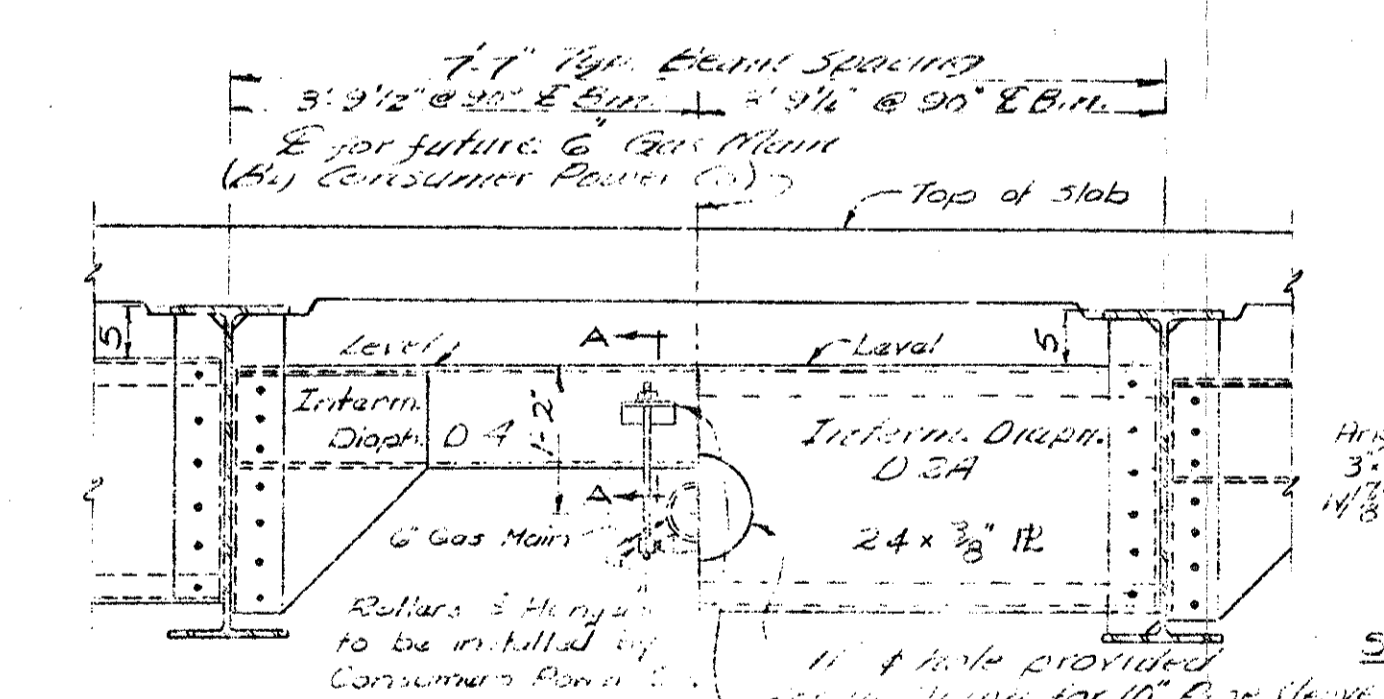 7'-7" Typ. Beam Spacing
3'-9 1/2" @ 90° ℄ Bm. 3'-9 1/2" @ 90° ℄ Bm.
℄ for future 6" Gas Main
(By Consumer Power Co)
Top of Slab
5
Level
A
Level
5
Interm.
Diaph. D 4
1'-2"
Interm. Diaph.
D 2A
A
6" Gas Main
24 x 3/8" PL
3"
Rollers & Hangers
to be installed by
Consumers Power
11" ϕ hole provided
for 10" Pipe Sleeve
S